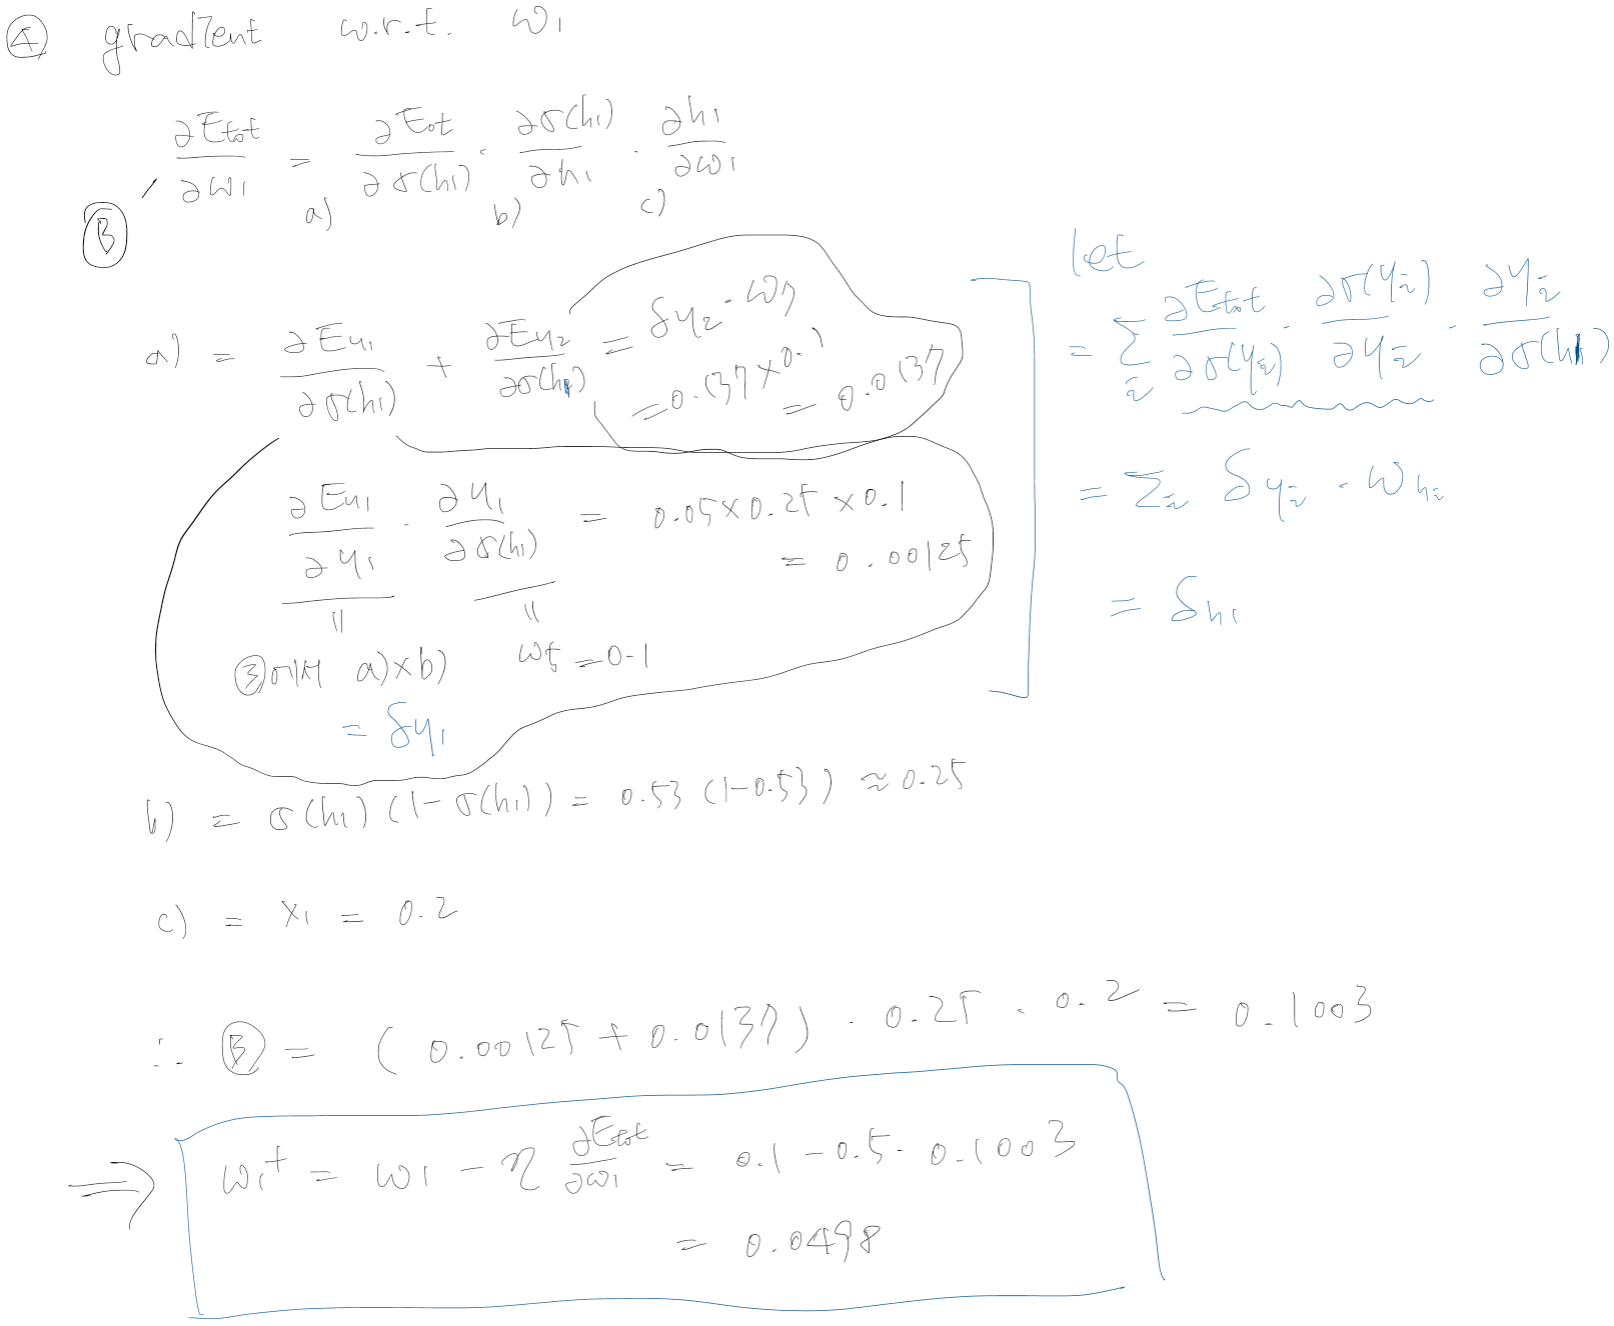 ④ gradient w.r.t. w₁
∂Etot/∂w₁ = ∂Etot/∂σ(h₁) · ∂σ(h₁)/∂h₁ · ∂h₁/∂w₁
Ⓑ a) b) c)
a) = ∂Ey₁/∂σ(h₁) + ∂Ey₂/∂σ(h₁) = δy₂ · w₇
= 0.137 × 0.1
= 0.0137
∂Ey₁/∂y₁ · ∂y₁/∂σ(h₁) = 0.05 × 0.25 × 0.1
= 0.00125
|| ||
③에서 a)×b) w₅ = 0.1
= δy₁
let
= Σᵢ ∂Etot/∂σ(yᵢ) · ∂σ(yᵢ)/∂yᵢ · ∂yᵢ/∂σ(h₁)
= Σᵢ δyᵢ · whᵢ
= δh₁
b) = σ(h₁)(1-σ(h₁)) = 0.53 (1-0.53) ≈ 0.25
c) = x₁ = 0.2
∴ Ⓑ = (0.00125 + 0.0137) · 0.25 · 0.2 = 0.1003
⇒ w₁⁺ = w₁ - η ∂Etot/∂w₁ = 0.1 - 0.5 · 0.1003
= 0.0498